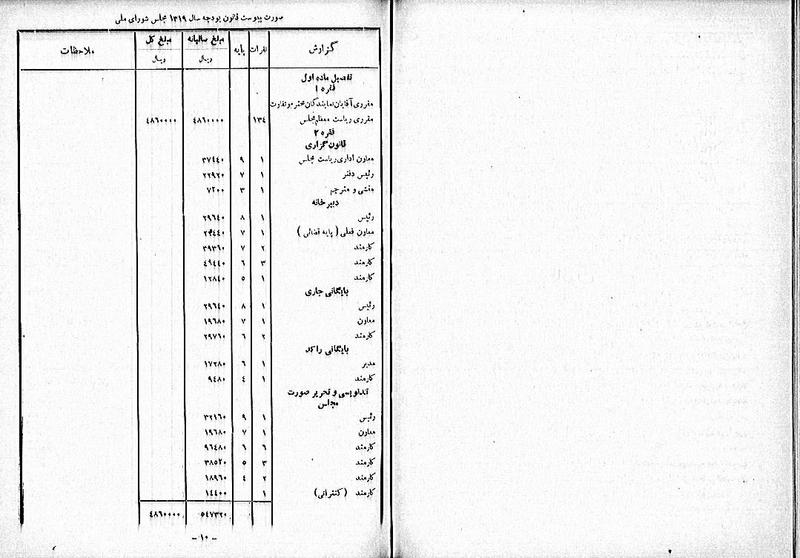 صورت پیوست قانون بودجه سال ۱۳۱۹ مجلس شورای ملی
گزارش نفرات پایه مبلغ سالیانه مبلغ کل ملاحظات
ریال ریال
تفصیل ماده اول
فقره ۱
مقرری آقایان نمایندگان محترم و تفاوت
مقرری ریاست معظم مجلس ۱۳٤ ٤٨٦۰۰۰۰ ٤٨٦۰۰۰۰
فقره ۲
قانون گزاری
معاون اداری ریاست مجلس ۱ ۹ ۳۷٤٤۰
رئیس دفتر ۱ ۷ ۲۲۹۲۰
منشی و مترجم ۱ ۳ ۷۲۰۰
دبیرخانه
رئیس ۱ ۸ ۲۹٦٤۰
معاون فعلی ( پایه قضائی ) ۱ ۷
کارمند ۲ ۷ ۳۹۳٦۰
کارمند ۳ ٦ ٤۹٤٤۰
کارمند ۱ ۵ ۱۲۸٤۰
بایگانی جاری
رئیس ۱ ۸ ۲۹٦٤۰
معاون ۱ ۷ ۱۹٦۸۰
کارمند ۲ ٦ ۲۹۷٦۰
بایگانی راکد
مدیر ۱ ٦ ۱۷۲۸۰
کارمند ۱ ٤ ۹٤۸۰
تندنویسی و تحریر صورت
مجلس
رئیس ۱ ۹ ۳۲۱٦۰
معاون ۱ ۷ ۱۹٦۸۰
کارمند ٦ ٦ ۹٦٤۸۰
کارمند ۳ ۵ ۳۸۵۲۰
کارمند ۲ ٤ ۱۸۹٦۰
کارمند (کنتراتی) ۱ ۱٤٤۰۰
۵٤۷۳۲۰ ٤۸٦۰۰۰۰
- ۱۰ -